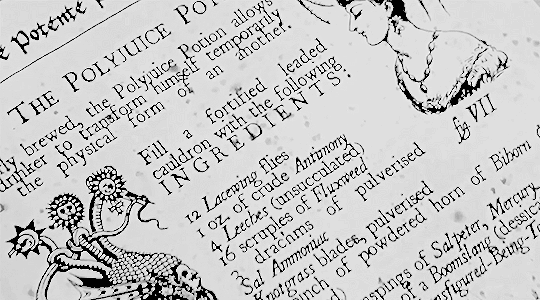 e Potente
THE POLYJUICE POT
ly brewed, the Polyjuice Potion allows
drinker to transform himself temporarily
the physical form of an another.
Fill a fortified leaded
cauldron with the following
INGREDIENTS:
12 Lacewing flies
1 oz of crude Antimony
4 Leeches (unsucculated)
16 scruples of Fluxweed
3 drachms of pulverised
Sal Ammoniac
Knotgrass blades, pulverised
nch of powdered horn of Bicorn
pings of Salpeter, Mercury
of a Boomslang (desicca
nsfigured Being-To
fig VII